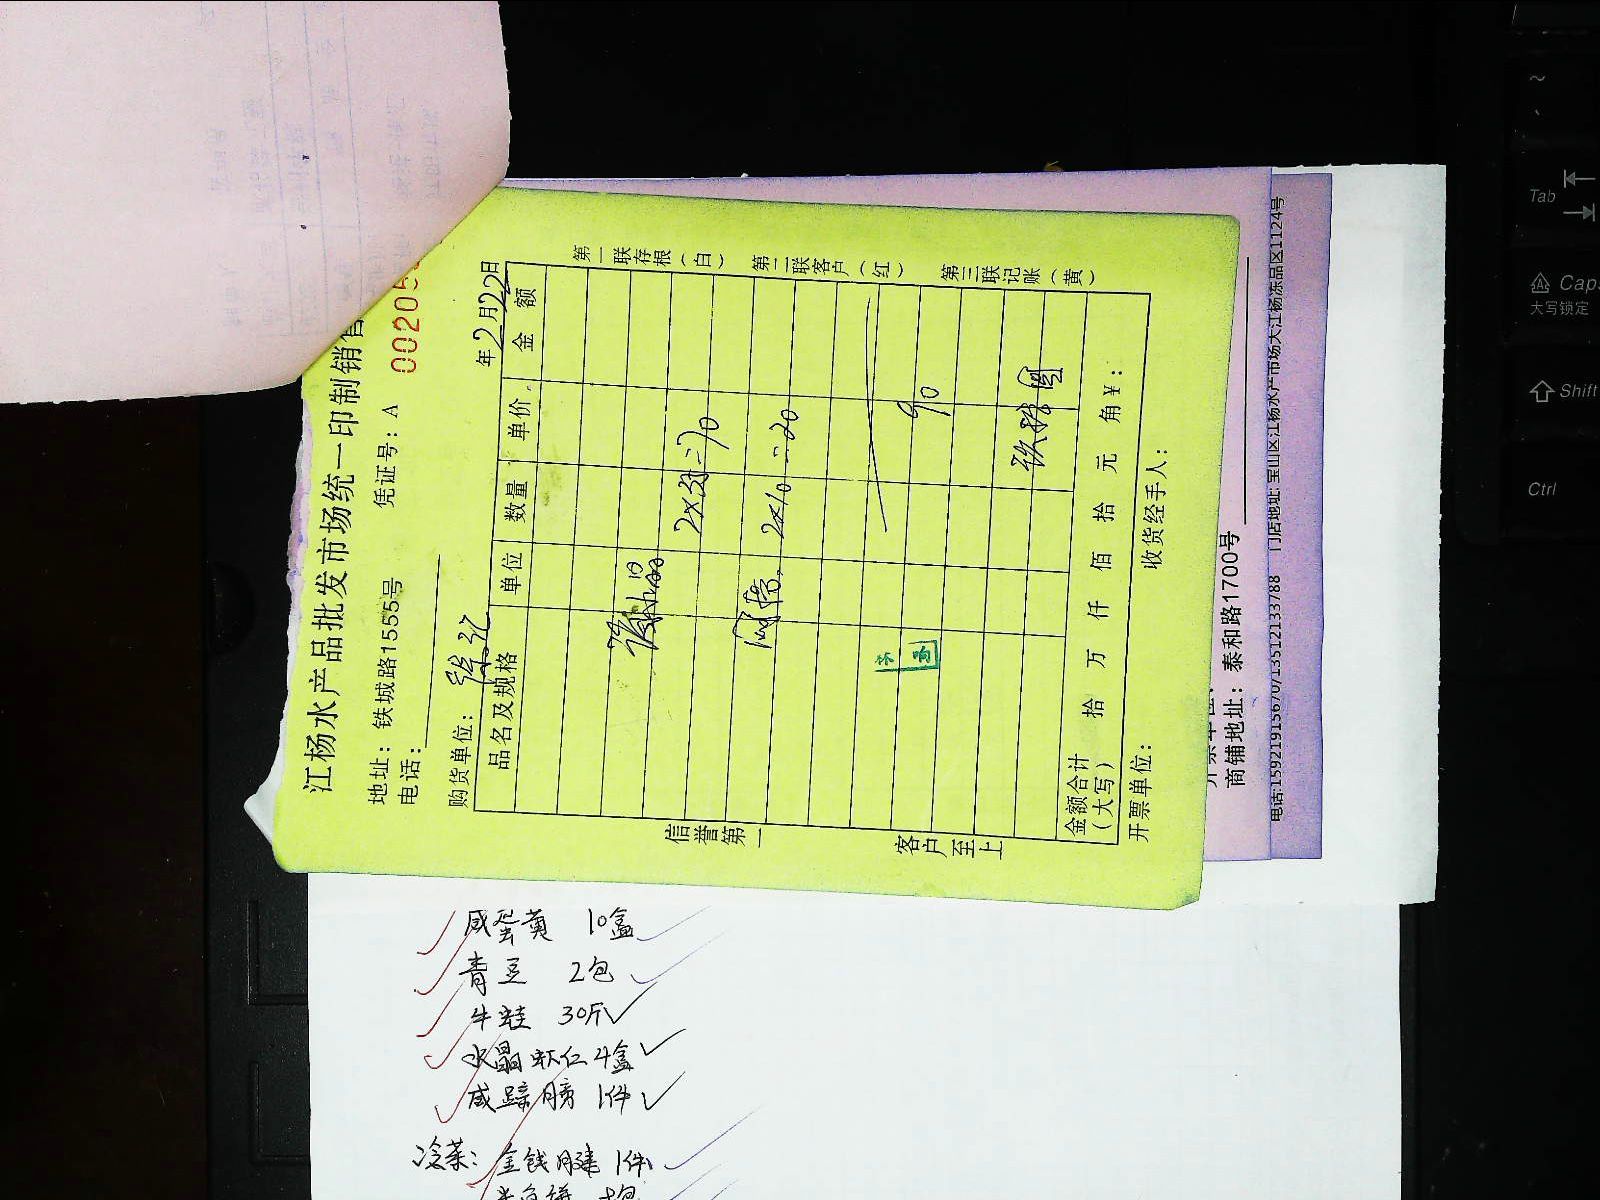 江杨水产品批发市场统一印制销售
地址：铁城路1555号 凭证号：A 00205
电话：
购货单位： 年2月22日
品名及规格 单位 数量 单价 金额
2×35=70
2×10=20
90
金额合计（大写） 拾 万 仟 佰 拾 元 角 ¥：
开票单位： 收货经手人：
信誉第一
客户至上
第一联存根（白）
第二联客户（红）
第三联记账（黄）
商铺地址：泰和路1700号
电话:15921915670/13512133788 门店地址:宝山区江杨水产市场大江杨冻品区1124号
咸蛋黄 10盒
青豆 2包
牛蛙 30斤
水晶虾仁 4盒
咸蹄膀 1件
冷菜：金钱腱 1件
Tab
Caps
大写锁定
Shift
Ctrl